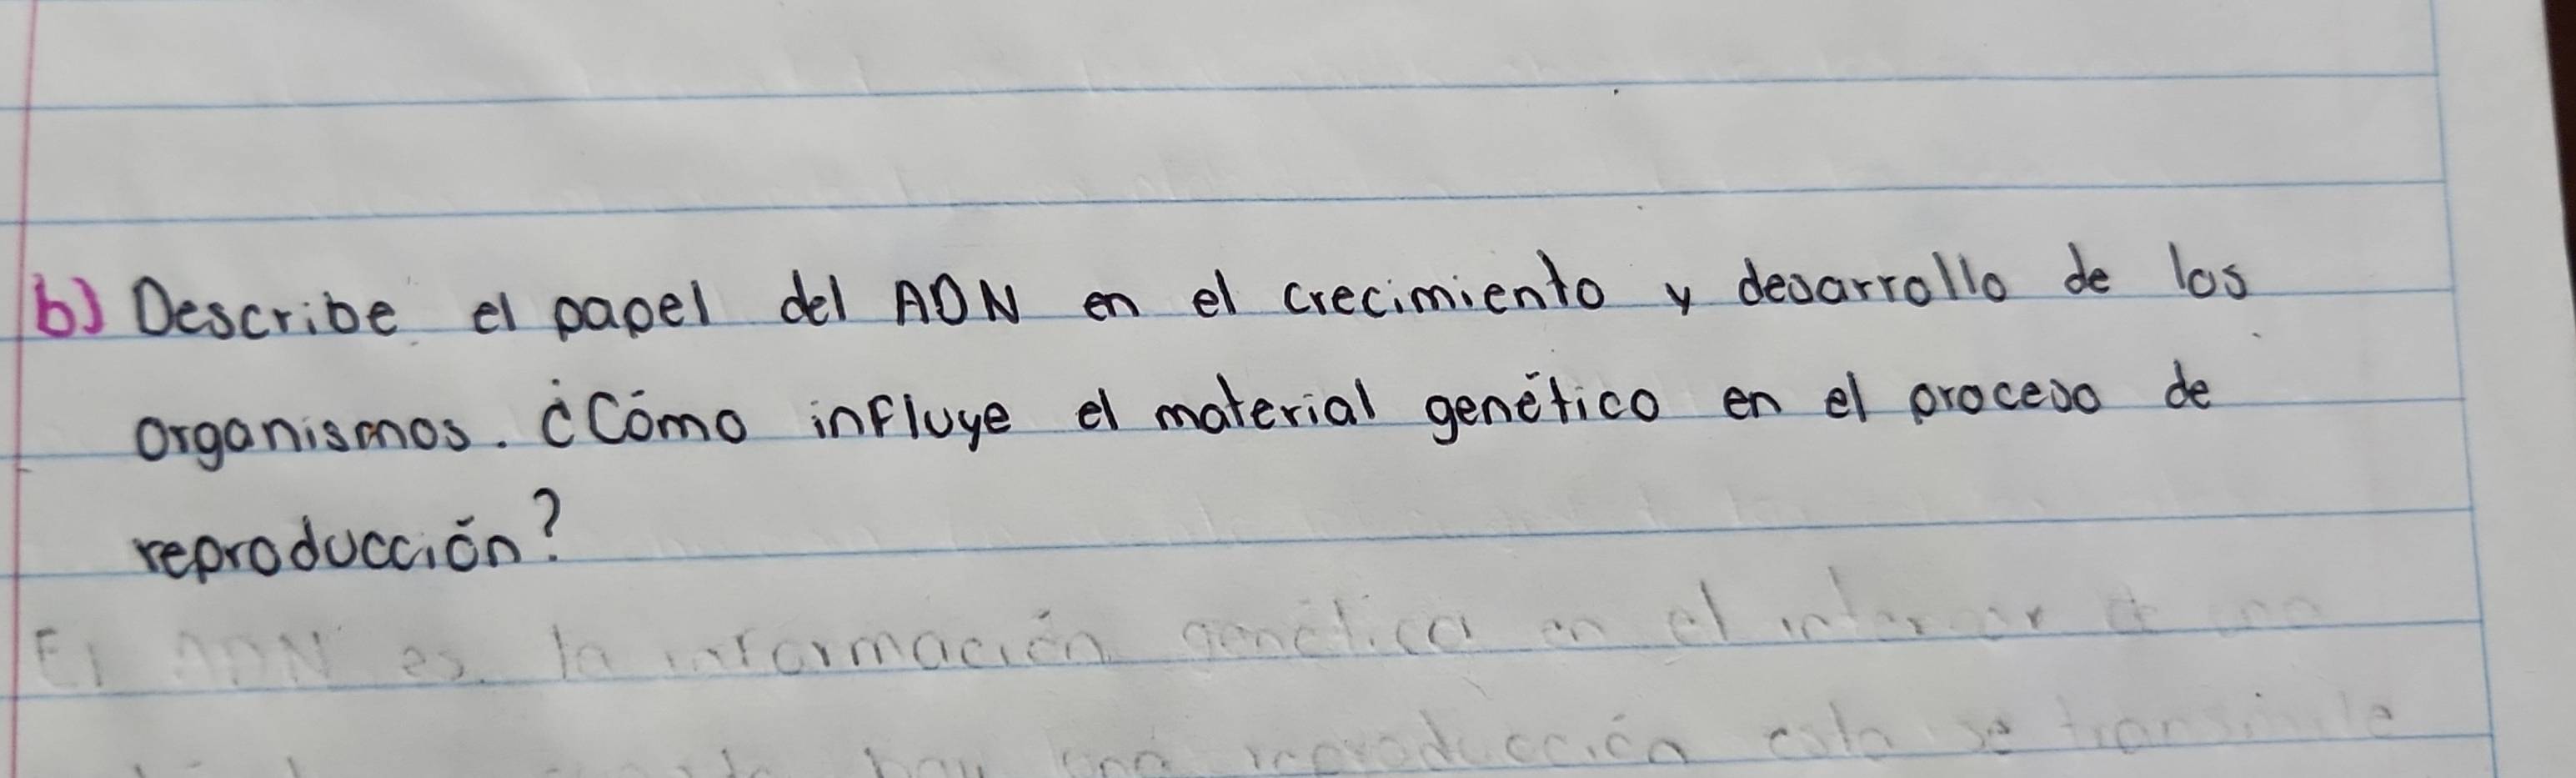 b) Describe el papel del ADN en el crecimiento y desarrollo de los
organismos. ¿Cómo influye el material genético en el proceso de
reproducción?
El ADN es la información genética en el interior
hay una reproducción esta se transmite